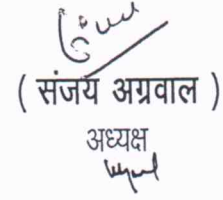 ( संजय अग्रवाल )
अध्यक्ष